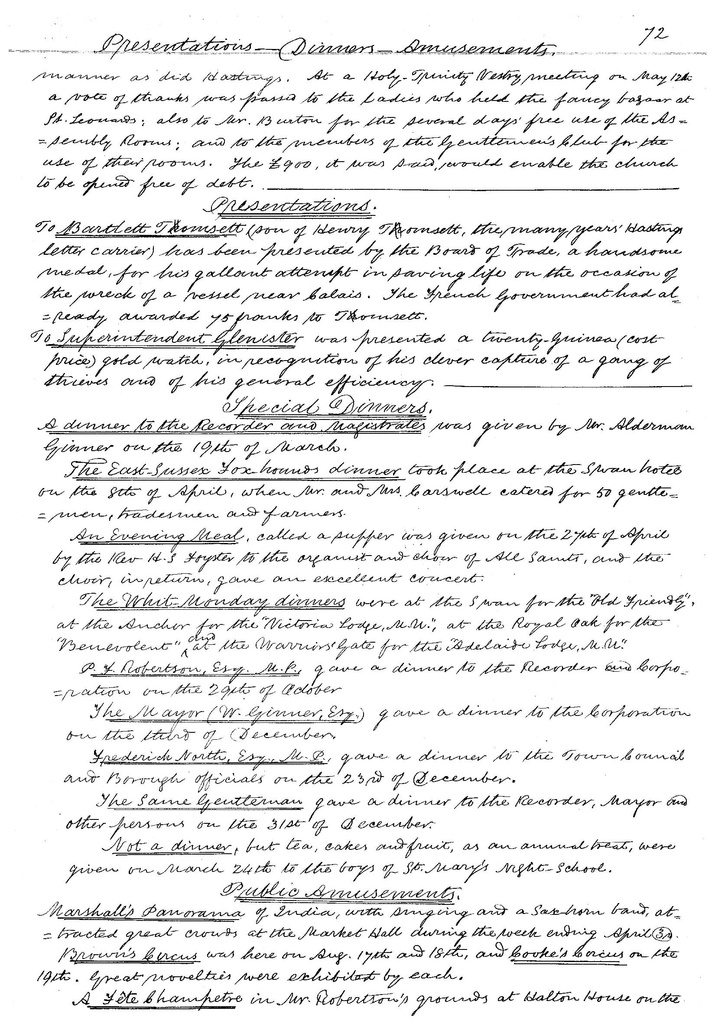 72
Presentations — Dinners — Amusements.
manner as did Hastings. At a Holy-Trinity Vestry meeting on May 12th
a vote of thanks was passed to the Ladies who held the fancy bazaar at
St. Leonards; also to Mr. Burton for the several days' free use of the As=
=sembly Rooms; and to the members of the Gentlemen's Club for the
use of their rooms. The £900, it was said, would enable the church
to be opened free of debt.
Presentations.
To Bartlett Thomsett (son of Henry Thomsett, the, many years' Hastings
letter carrier) has been presented by the Board of Trade, a handsome
medal, for his gallant attempt in saving life on the occasion of
the wreck of a vessel near Calais. The French Government had al=
=ready awarded 75 franks to Thomsett.
To Superintendent Glenister was presented a twenty-Guinea (cost
price) gold watch, in recognition of his clever capture of a gang of
thieves and of his general efficiency.
Special Dinners.
A dinner to the Recorder and Magistrates was given by Mr. Alderman
Ginner on the 19th of March.
The East-Sussex Fox hounds dinner took place at the Swan hotel
on the 8th of April, when Mr. and Mrs. Carswell catered for 50 gentle=
=men, tradesmen and farmers.
An Evening Meal, called a supper was given on the 27th of April
by the Rev H.S Foyster to the organist and choir of All Saints, and the
choir, in return, gave an excellent concert.
The Whit-Monday dinners were at the Swan for the "Old Friendly",
at the Anchor for the "Victoria Lodge, M.U.", at the Royal Oak for the
"Benevolent" and at the Warriors' Gate for the "Adelaide Lodge, M.U."
P. F. Robertson, Esq. M.P., gave a dinner to the Recorder and Corpo=
=ration on the 29th of October
The Mayor (W. Ginner, Esq.) gave a dinner to the Corporation
on the third of December.
Frederick North, Esq., M.P., gave a dinner to the Town Council
and Borough officials on the 23rd of December.
The Same Gentleman gave a dinner to the Recorder, Mayor and
other persons on the 31st of December.
Not a dinner, but tea, cakes and fruit, as an annual treat, were
given on March 24th to the boys of St. Mary's Night-School.
Public Amusements.
Marshall's Panorama of India, with singing and a Saxhorn band, at=
=tracted great crowds at the Market Hall during the week ending April 3rd.
Brown's Circus was here on Aug. 17th and 18th, and Cooke's Circus on the
19th. Great novelties were exhibited by each.
A Fête Champetre in Mr. Robertson's grounds at Halton House on the